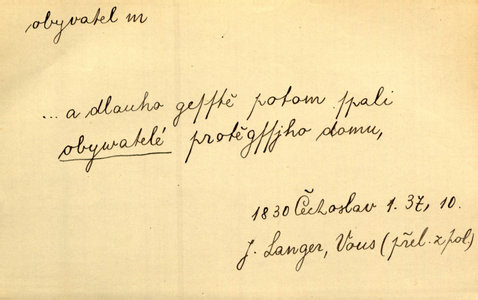 obyvatel m
... a dlauho gessstě potom spali
obywatelé protěgssjho domu,
1830 Čechoslav 1. 37, 10.
J. Langer, Vous (přel. z pol)